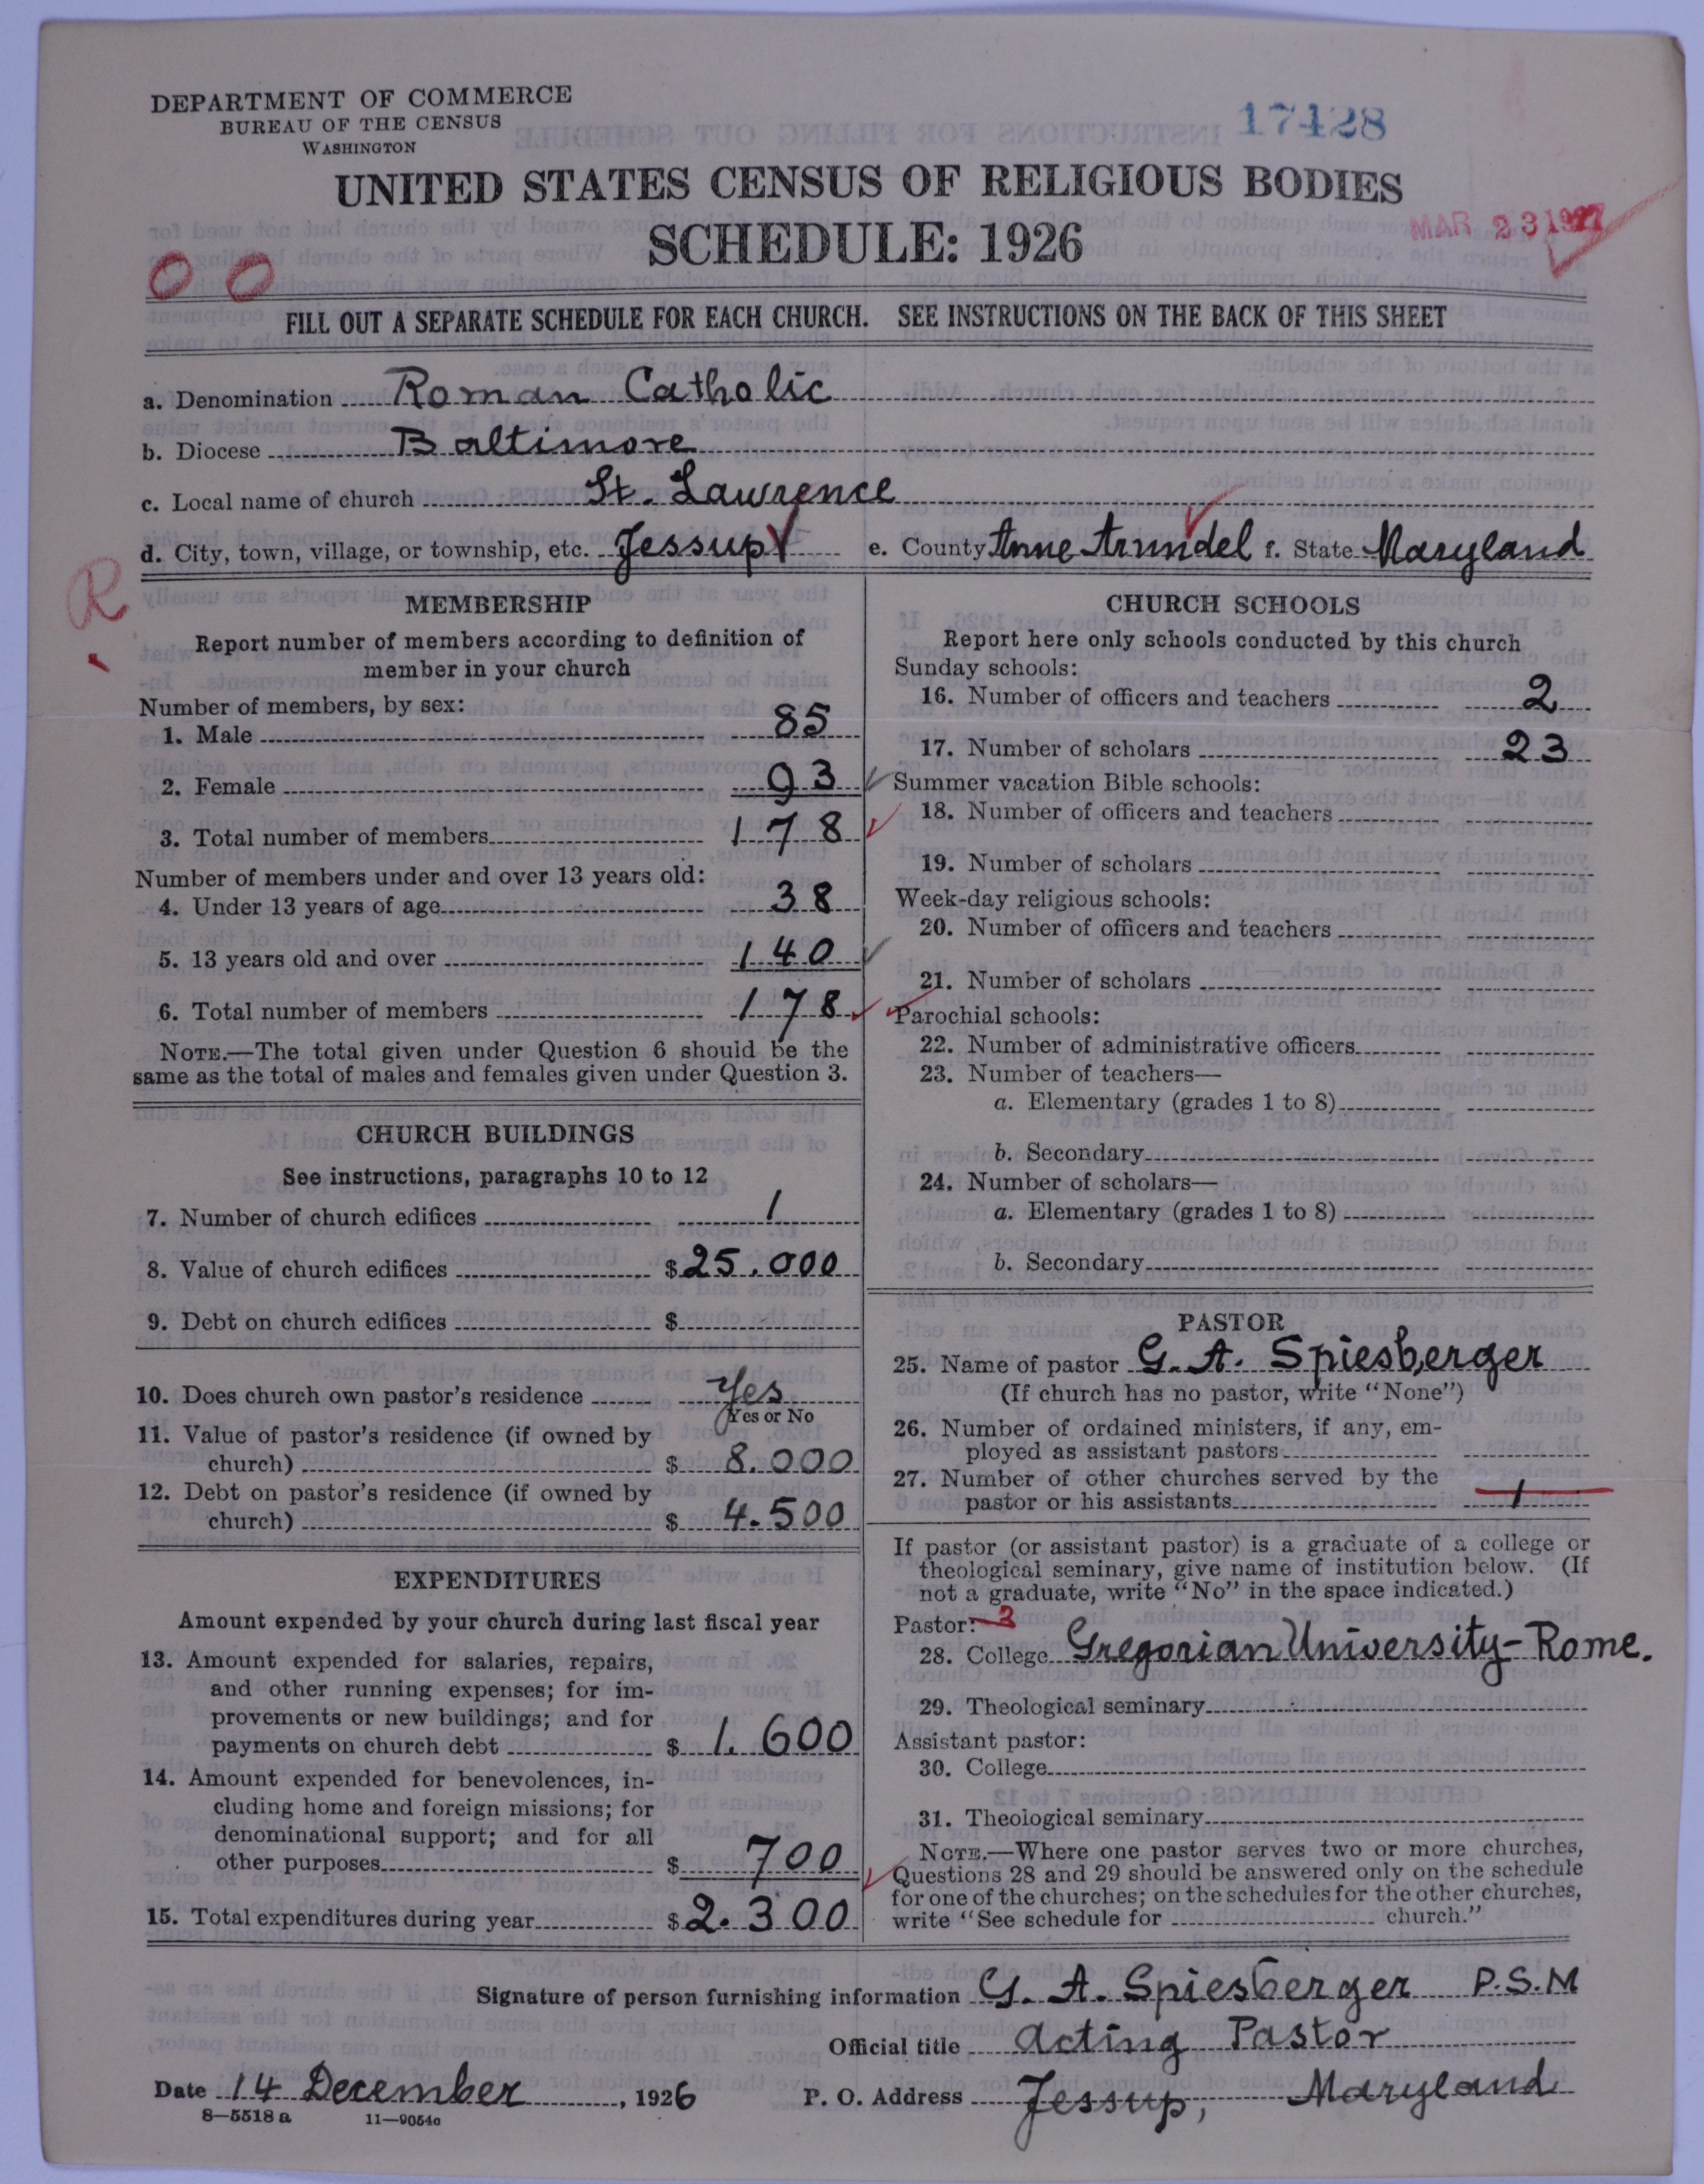 DEPARTMENT OF COMMERCE
BUREAU OF THE CENSUS
WASHINGTON
17428
UNITED STATES CENSUS OF RELIGIOUS BODIES
SCHEDULE: 1926
MAR 23 1927
0 0
FILL OUT A SEPARATE SCHEDULE FOR EACH CHURCH. SEE INSTRUCTIONS ON THE BACK OF THIS SHEET
a. Denomination Roman Catholic
b. Diocese Baltimore
c. Local name of church St. Lawrence
d. City, town, village, or township, etc. Jessup e. County Anne Arundel f. State Maryland
R
MEMBERSHIP
Report number of members according to definition of
member in your church
Number of members, by sex:
1. Male 85
2. Female 93
3. Total number of members 178
Number of members under and over 13 years old:
4. Under 13 years of age 38
5. 13 years old and over 140
6. Total number of members 178
NOTE.—The total given under Question 6 should be the
same as the total of males and females given under Question 3.
CHURCH BUILDINGS
See instructions, paragraphs 10 to 12
7. Number of church edifices 1
8. Value of church edifices $25.000
9. Debt on church edifices $
10. Does church own pastor's residence Yes
Yes or No
11. Value of pastor's residence (if owned by
church) $ 8.000
12. Debt on pastor's residence (if owned by
church) $ 4.500
EXPENDITURES
Amount expended by your church during last fiscal year
13. Amount expended for salaries, repairs,
and other running expenses; for im-
provements or new buildings; and for
payments on church debt $ 1.600
14. Amount expended for benevolences, in-
cluding home and foreign missions; for
denominational support; and for all
other purposes $ 700
15. Total expenditures during year $2.300
CHURCH SCHOOLS
Report here only schools conducted by this church
Sunday schools:
16. Number of officers and teachers 2
17. Number of scholars 23
Summer vacation Bible schools:
18. Number of officers and teachers
19. Number of scholars
Week-day religious schools:
20. Number of officers and teachers
21. Number of scholars
Parochial schools:
22. Number of administrative officers
23. Number of teachers—
a. Elementary (grades 1 to 8)
b. Secondary
24. Number of scholars—
a. Elementary (grades 1 to 8)
b. Secondary
PASTOR
25. Name of pastor G. A. Spiesberger
(If church has no pastor, write "None")
26. Number of ordained ministers, if any, em-
ployed as assistant pastors
27. Number of other churches served by the
pastor or his assistants 1
If pastor (or assistant pastor) is a graduate of a college or
theological seminary, give name of institution below. (If
not a graduate, write "No" in the space indicated.)
Pastor: 3
28. College Gregorian University-Rome.
29. Theological seminary
Assistant pastor:
30. College
31. Theological seminary
NOTE.—Where one pastor serves two or more churches,
Questions 28 and 29 should be answered only on the schedule
for one of the churches; on the schedules for the other churches,
write "See schedule for church."
Signature of person furnishing information G. A. Spiesberger P.S.M
Official title Acting Pastor
Date 14 December, 1926 P. O. Address Jessup, Maryland
8—5518 a 11—9054a